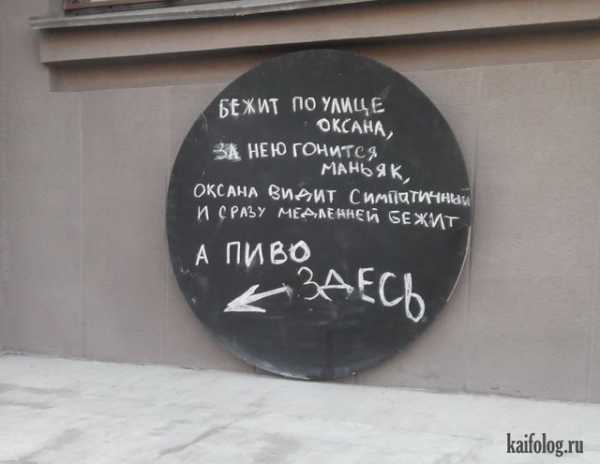 БЕЖИТ ПО УЛИЦЕ
ОКСАНА,
ЗА НЕЮ ГОНИТСЯ
МАНЬЯК,
ОКСАНА ВИДИТ СИМПАТИЧНЫЙ
И СРАЗУ МЕДЛЕННЕЙ БЕЖИТ
А ПИВО
ЗДЕСЬ
kaifolog.ru